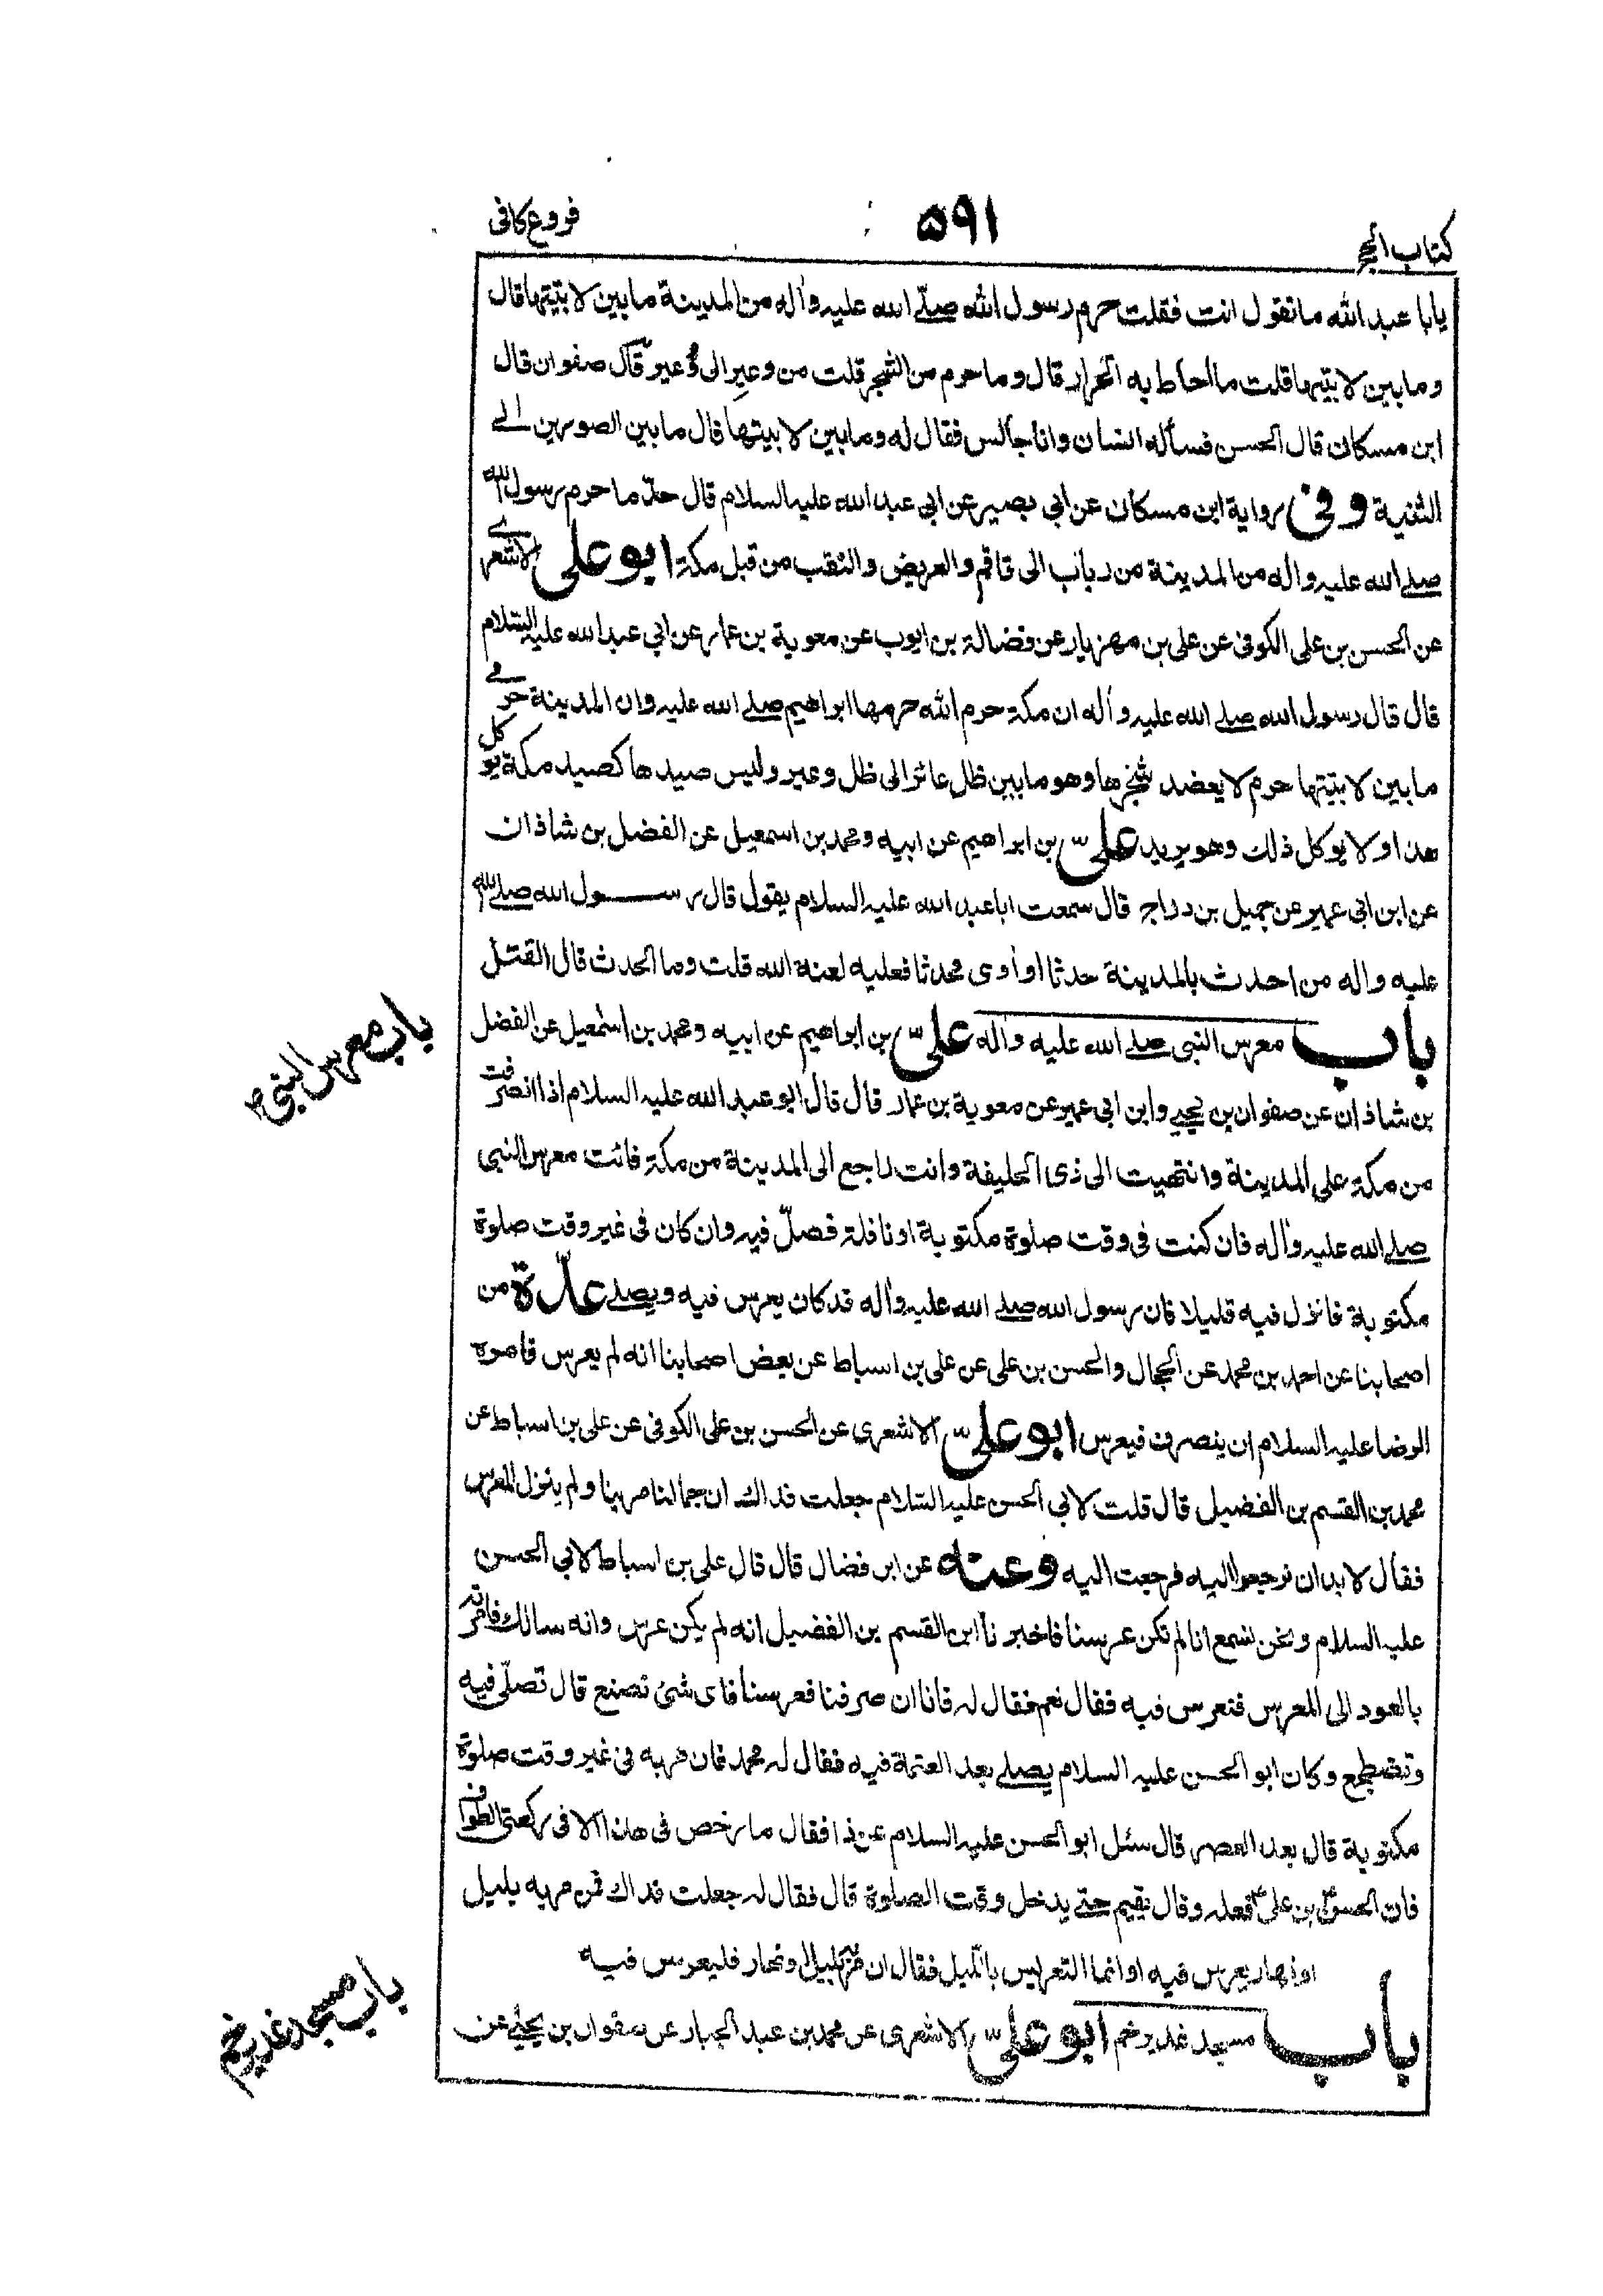 كتاب الحج
۵۹۱
فروع كافى
يابا عبد الله ما تقول انت فقلت حرم رسول الله صلى الله عليه واله من المدينة ما بين لابتيها قال
وما بين لابتيها قلت ما احاط به الحرار قال وما حرم من الشجر قلت من وعير الى وعير قال صفوان قال
ابن مسكان قال الحسن فسأله انسان وانا جالس فقال له وما بين لابيتها قال ما بين الصورين الى
الثنية وفى رواية ابن مسكان عن ابي بصير عن ابي عبد الله عليه السلام قال حد ما حرم رسول الله
صلى الله عليه واله من المدينة من رباب الى قاقم والعريض والنقب من قبل مكة ابو على الاشعرى
عن الحسن بن على الكوفى عن على بن مهزيار عن فضالة بن ايوب عن معوية بن عمار عن ابي عبد الله عليه السلام
قال قال رسول الله صلى الله عليه واله ان مكة حرم الله حرمها ابراهيم صلى الله عليه وان المدينة حرمى
ما بين لابتيها حرم لا يعضد شجرها وهو ما بين ظل عائر الى ظل وعير وليس صيدها كصيد مكة يوكل
هذا ولا يوكل ذلك وهو بريد على بن ابراهيم عن ابيه ومحمد بن اسمعيل عن الفضل بن شاذان
عن ابن ابي عمير عن جميل بن دراج قال سمعت ابا عبد الله عليه السلام يقول قال رسول الله صلى الله
عليه واله من احدث بالمدينة حدثا او اوى محدثا فعليه لعنة الله قلت وما الحدث قال القتل
باب معرس النبى صلى الله عليه واله على بن ابراهيم عن ابيه ومحمد بن اسمعيل عن الفضل
بن شاذان عن صفوان بن يحيى وابن ابي عمير عن معوية بن عمار قال قال ابو عبد الله عليه السلام اذا انصرفت
من مكة على المدينة وانتهيت الى ذى الحليفة وانت راجع الى المدينة من مكة فائت معرس النبى
صلى الله عليه واله فان كنت فى وقت صلوة مكتوبة او نافلة فصلّ فيه وان كان فى غير وقت صلوة
مكتوبة فانزل فيه قليلا فان رسول الله صلى الله عليه واله قد كان يعرس فيه ويصلى عدّة من
اصحابنا عن احمد بن محمد عن الحجال والحسن بن على عن على بن اسباط عن بعض اصحابنا انه لم يعرس فامره
الرضا عليه السلام ان ينصرف فيعرس ابو على الاشعرى عن الحسن بن على الكوفى عن على بن اسباط عن
محمد بن القسم بن الفضيل قال قلت لابي الحسن عليه السلام جعلت فداك ان جمالنا مر بنا ولم ينزل المعرس
فقال لا بد ان ترجعوا اليه فرجعت اليه وعنه عن ابن فضال قال قال على بن اسباط لابي الحسن
عليه السلام ونحن نسمع انا لم نكن عرسنا فاخبرنا ابن القسم بن الفضيل انه لم يكن عرس وانه سالك فامرته
بالعود الى المعرس فنعرس فيه فقال نعم فقال له فانا ان صرفنا فعرسنا فاى شئ نصنع قال تصلّى فيه
وتضطجع وكان ابو الحسن عليه السلام يصلى بعد العتمة فيه فقال له محمد فان مر به فى غير وقت صلوة
مكتوبة قال بعد العصر قال سئل ابو الحسن عليه السلام عن ذا فقال ما رخص فى هذا الا فى ركعتى الطواف
فان الحسن بن على فعله وقال يقيم حتى يدخل وقت الصلوة قال فقال له جعلت فداك فمن مر به بليل
او نهار يعرس فيه او انما التعريس بالليل فقال ان مر به بليل او نهار فليعرس فيه
باب مسجد غدير خم ابو على الاشعرى عن محمد بن عبد الجبار عن صفوان بن يحيى عن
باب معرس النبى ص
باب مسجد غدير خم